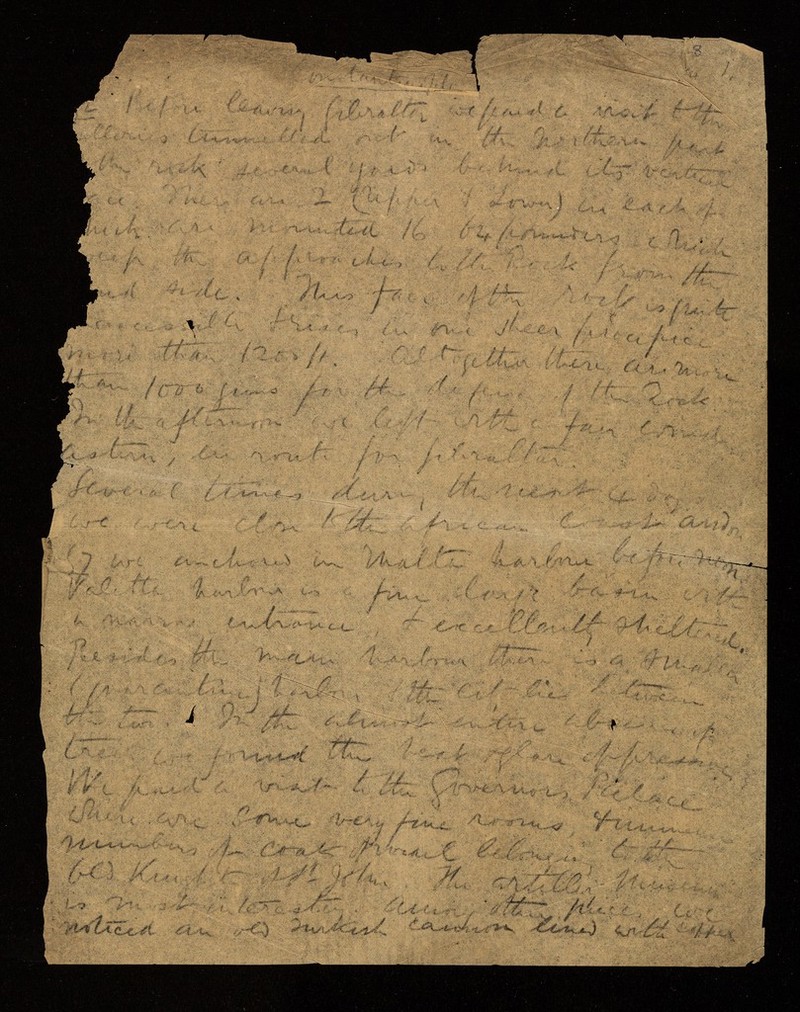 8
1.
onstantinople
Before leaving Gibraltar we paid a visit to the
lleries tunnelled out in the Northern part
the rock several yards behind its vertical
ace. There are 2 (Upper & Lower) in each of
hich are mounted 16 64 pounders which
eep the approaches to the Rock from the
nd side. This face of the rock is quite
accessible & rises in one sheer precipice
more than 1200 ft. Altogether there are more
than 1000 guns for the defence of the Rock
In the afternoon we left with a fair wind
astern, en route for Gibraltar.
Several times during the next 4 days
we were close to the African Coast and on
we anchored in Malta harbour before noon.
Valetta harbour is a fine large basin with
a narrow entrance, & excellently sheltered.
Besides the main harbour there is a smaller
(quarantine) harbour & the city lies between
the two. In the almost entire absence of
trees we found the heat & glare oppressive.
We paid a visit to the Governors Palace
where are some very fine rooms, &
numbers of coats of mail belonging to the
old Knights of St. John. The artillery Museum
is most interesting. Among other pieces we
noticed an old Turkish cannon lined with copper